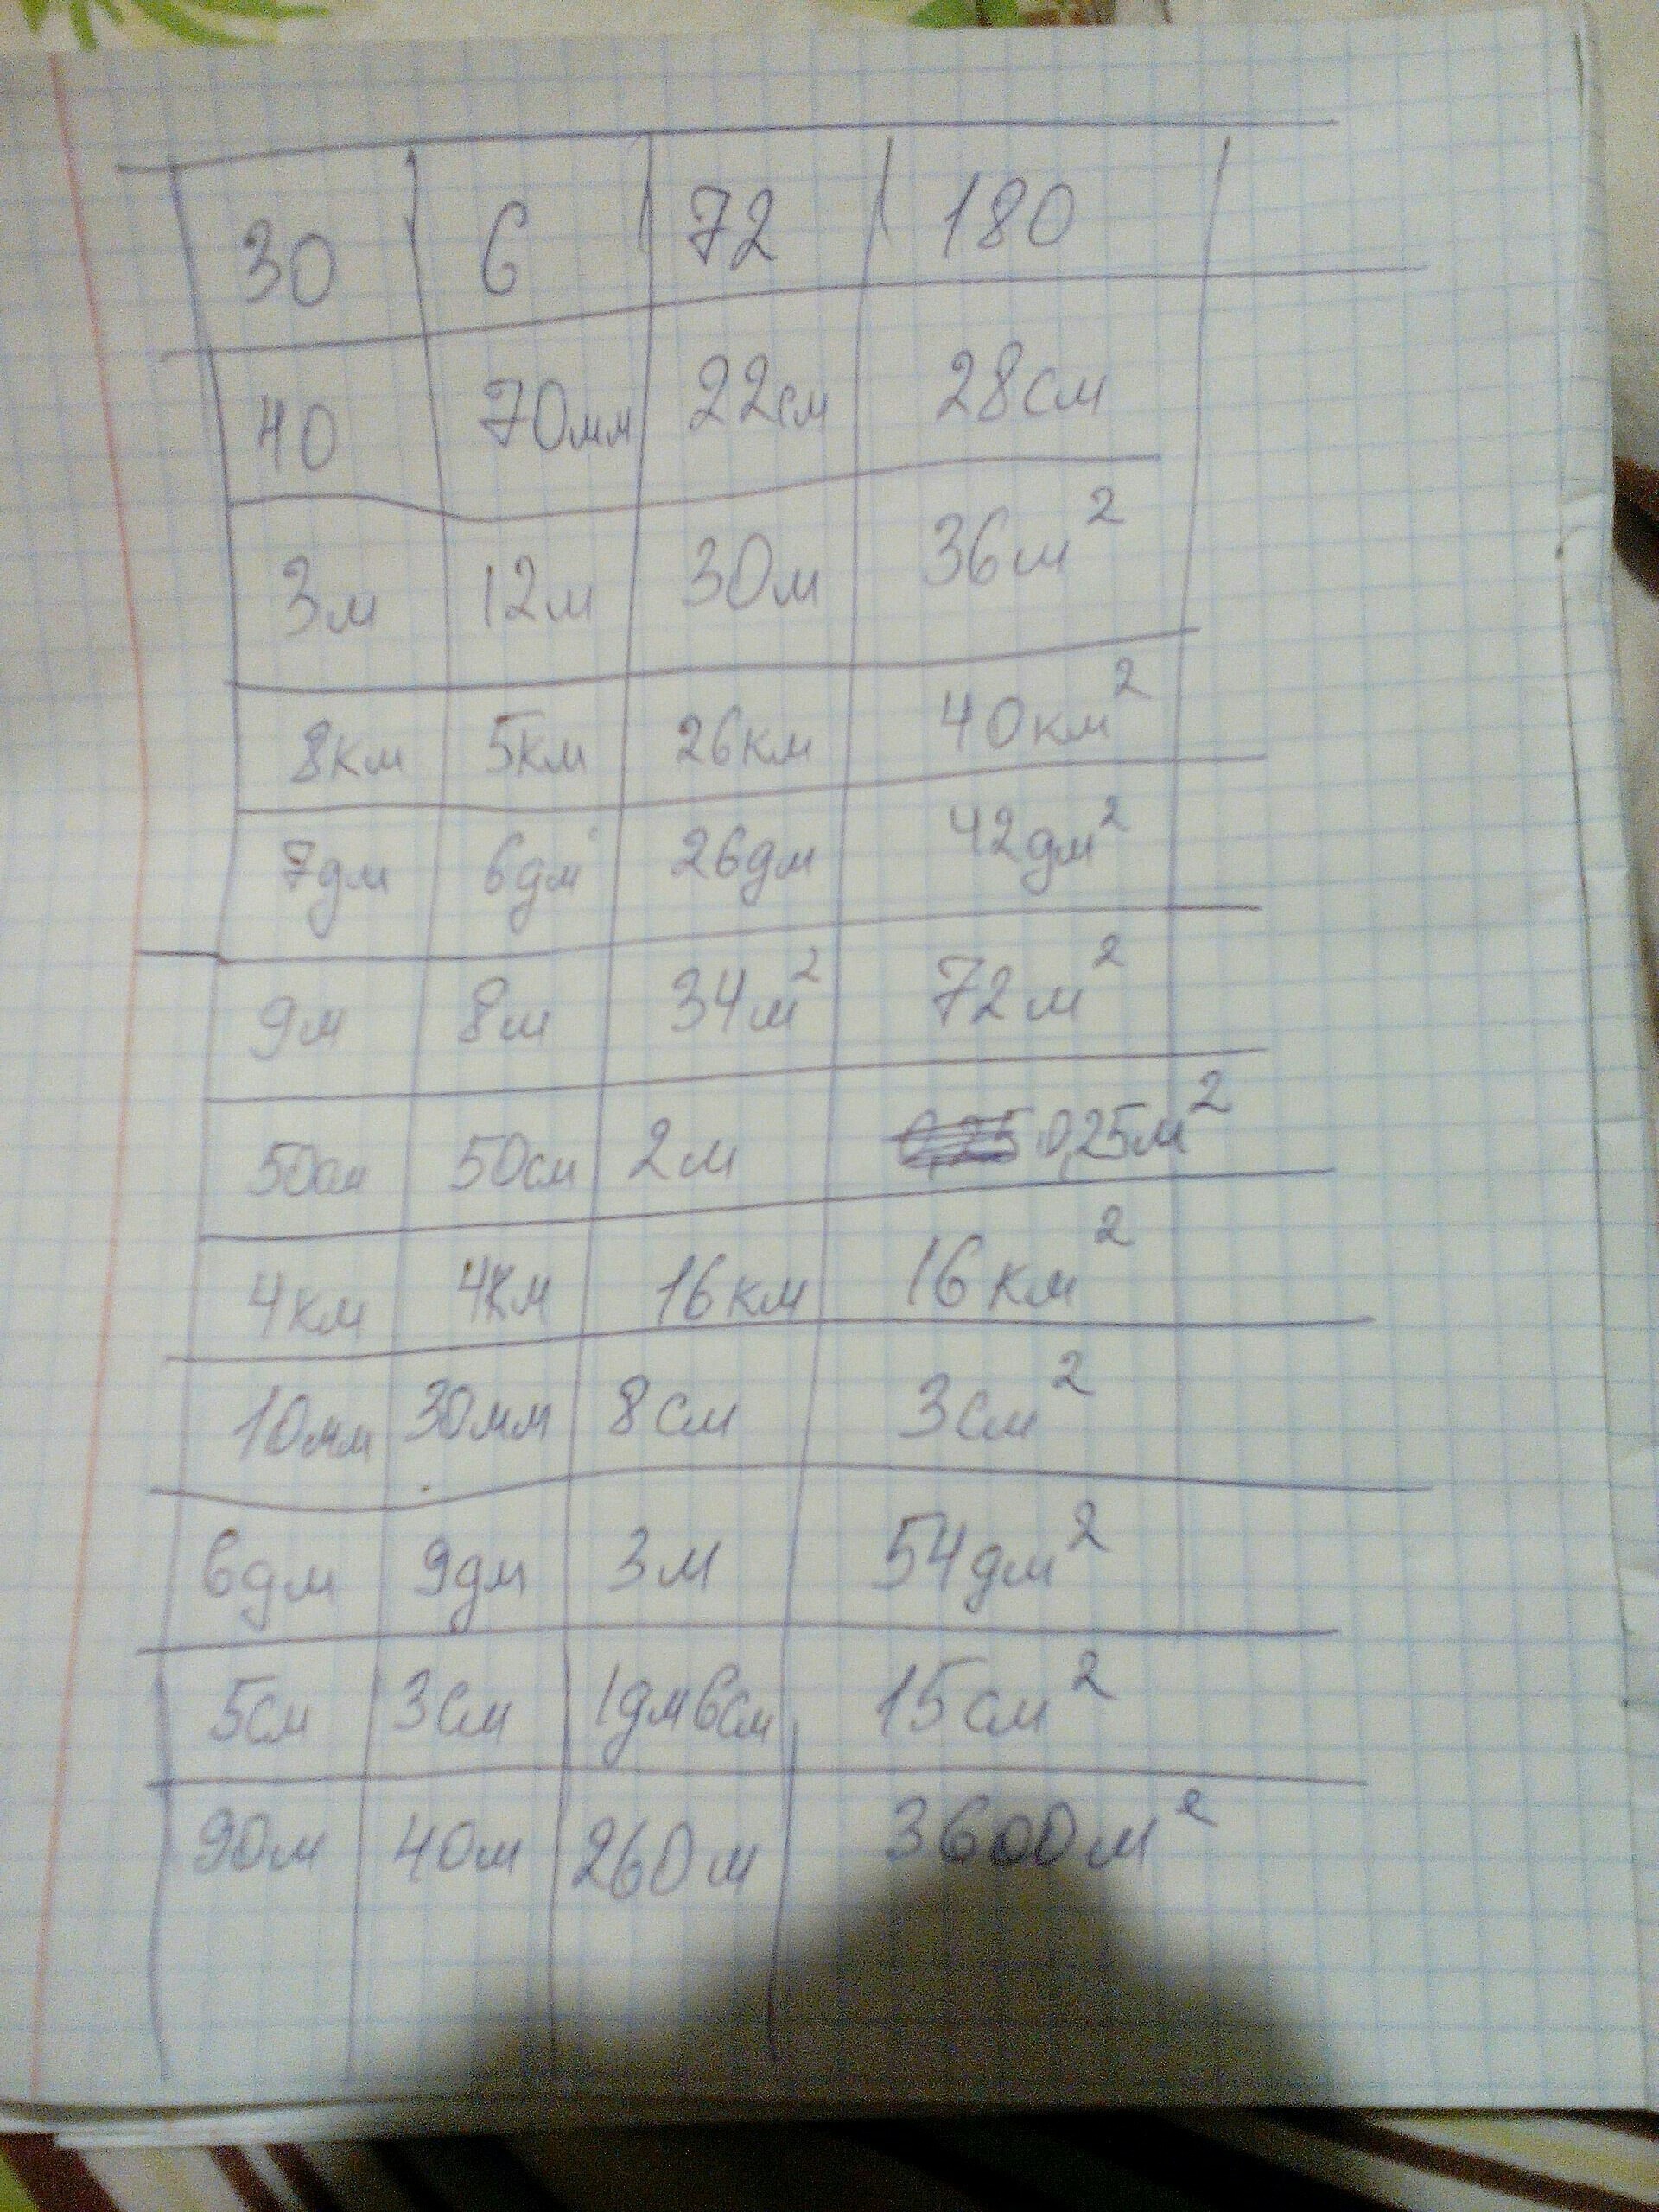 30 6 72 180
40 70мм 22см 28см
3м 12м 30м 36м²
8км 5км 26км 40км²
7дм 6дм 26дм 42дм²
9м 8м 34м² 72м²
50см 50см 2м 0,25 0,25м²
4км 4км 16км 16км²
10мм 30мм 8см 3см²
6дм 9дм 3м 54дм²
5см 3см 1дм6см 15см²
90м 40м 260м 3600м²